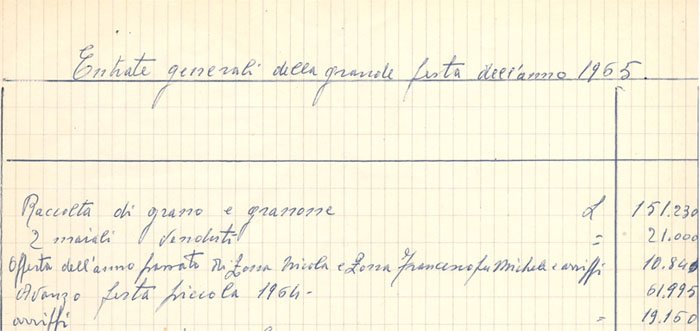 Entrate generali della grande festa dell'anno 1965.
Raccolta di grano e granone £ 151.230
2 maiali venduti = 21.000
Offerta dell'anno passato di Zossa Nicola e Zossa Francesco fu Michele e arriffi 10.840
Avanzo festa piccola 1964- 61,995
arriffi = 19.150